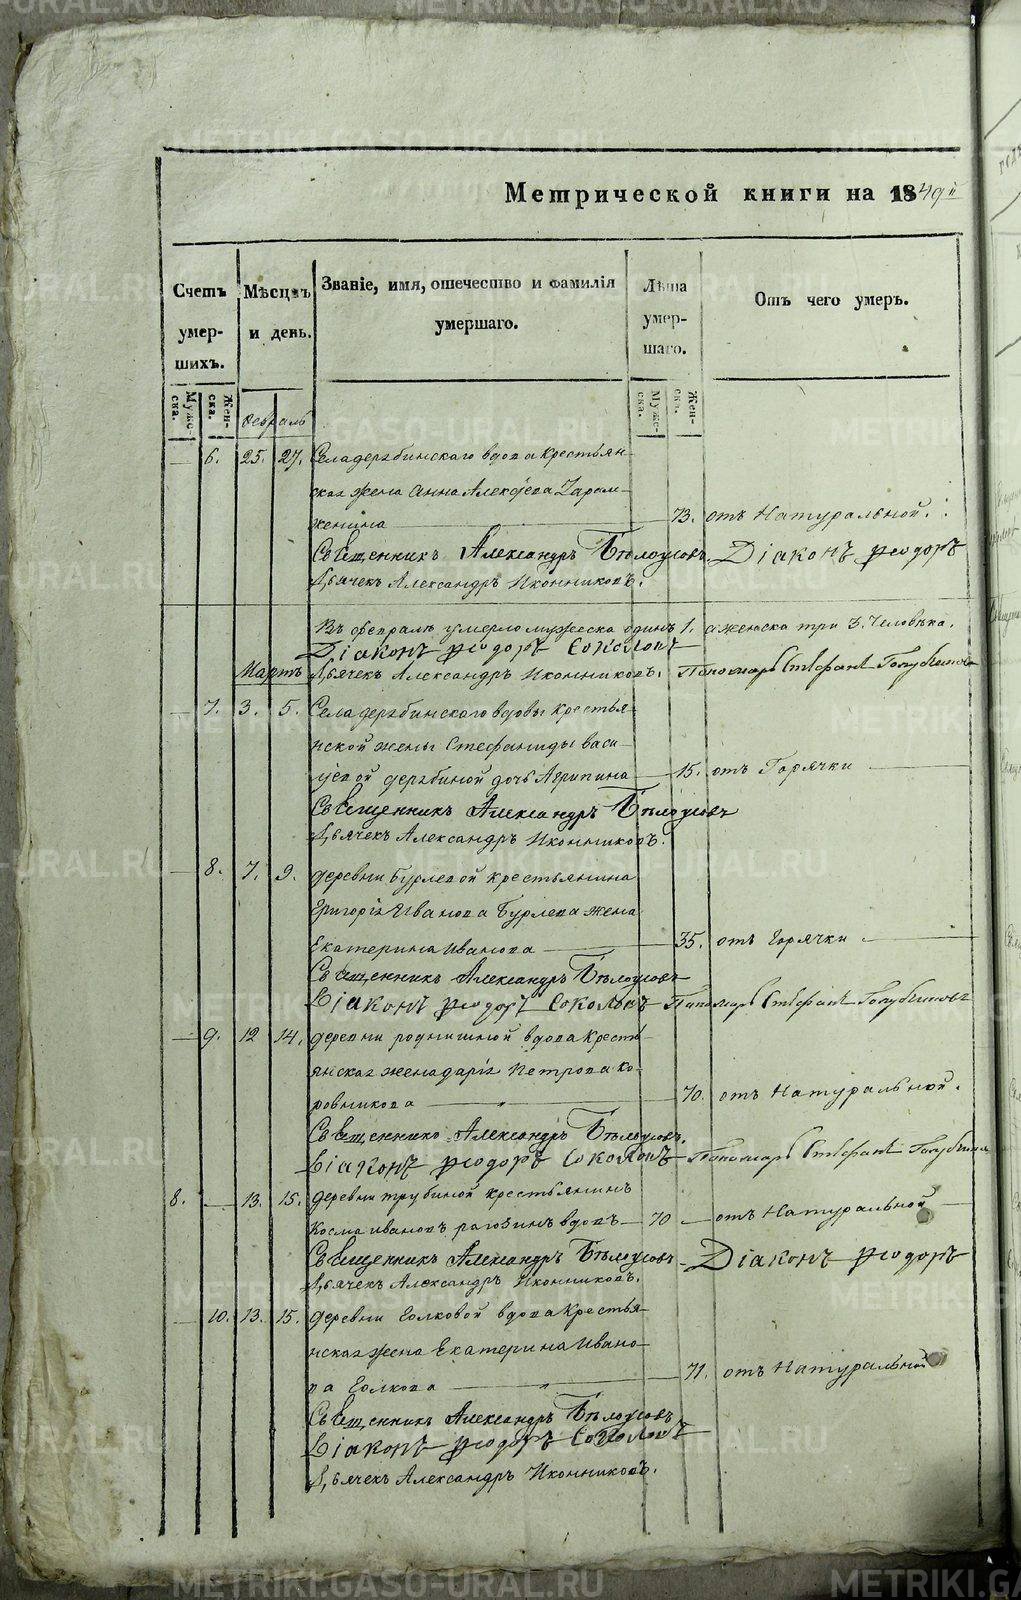 METRIKI.GASO-URAL.RU
Метрической книги на 1849й
Счетъ умер-шихъ.
Мѣсяцъ и день.
Званіе, имя, отечество и фамилія умершаго.
Лѣта умер-шаго.
Отъ чего умеръ.
Мужеска. Женска. Мужеска. Женска.
Февраль
6. 25. 27. Села дерябинскаго вдова крестьян-
ская жена Анна Алексѣева
женина 73. отъ Натуральной.
Священникъ Александръ Бѣлоусовъ Діаконъ Ѳеодоръ
Дьячекъ Александръ Иконниковъ.
Въ февралѣ умерло мужеска одинъ 1. а женска три 3. Человѣка.
Діаконъ Ѳеодоръ Соколовъ
Мартъ Дьячекъ Александръ Иконниковъ. Пономарь Стефанъ Голубчиковъ
7. 3. 5. Села дерябинскаго вдовы крестья-
нской жены Стефаниды Васи-
льевой дерябиной дочь Агрипина 15. отъ Горячки
Священникъ Александръ Бѣлоусовъ
Дьячекъ Александръ Иконниковъ.
8. 7. 9. деревни Бурлевой крестьянина
Григорія Иванова Бурлева жена
Екатерина Иванова 35. отъ Горячки
Священникъ Александръ Бѣлоусовъ
Діаконъ Ѳеодоръ Соколовъ Пономарь Стефанъ Голубчиковъ
9. 12 14. деревни вдова Кресть-
янская жена Дарія Петрова Ко-
ровникова 70. отъ Натуральной.
Священникъ Александръ Бѣлоусовъ.
Діаконъ Ѳеодоръ Соколовъ Пономарь Стефанъ Голубчиковъ
8. 13. 15. деревни трубиной крестьянинъ
Косма Ивановъ рагозинъ вдовъ 70 отъ Натуральной
Священникъ Александръ Бѣлоусовъ Діаконъ Ѳеодоръ
Дьячекъ Александръ Иконниковъ.
10. 13. 15. деревни Голковой вдова Крестья-
нская жена Екатерина Ивано-
ва Голкова 71. отъ Натуральной
Священникъ Александръ Бѣлоусовъ
Діаконъ Ѳеодоръ Соколовъ
Дьячекъ Александръ Иконниковъ.